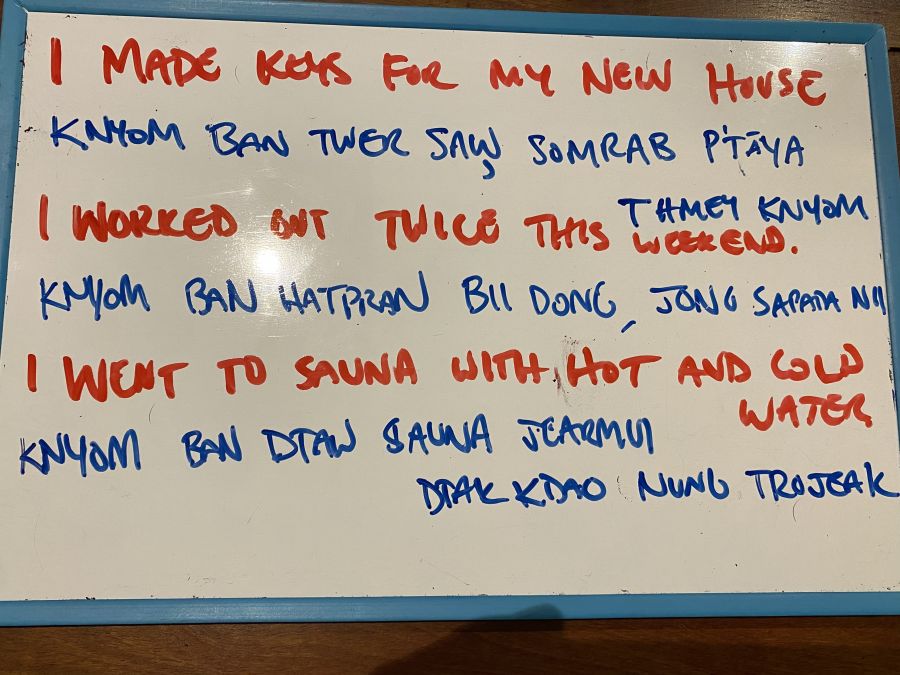 I MADE KEYS FOR MY NEW HOUSE
KNYOM BAN TWER SAW, SOMRAB P'TĀYA
THMEY KNYOM
I WORKED OUT TWICE THIS WEEKEND.
KNYOM BAN HATPRAN BII DONG, JONG SAPADA NII
I WENT TO SAUNA WITH HOT AND COLD
WATER
KNYOM BAN DTAW SAUNA JEARMUI
DTAK KDAO NUNG TROJEAK